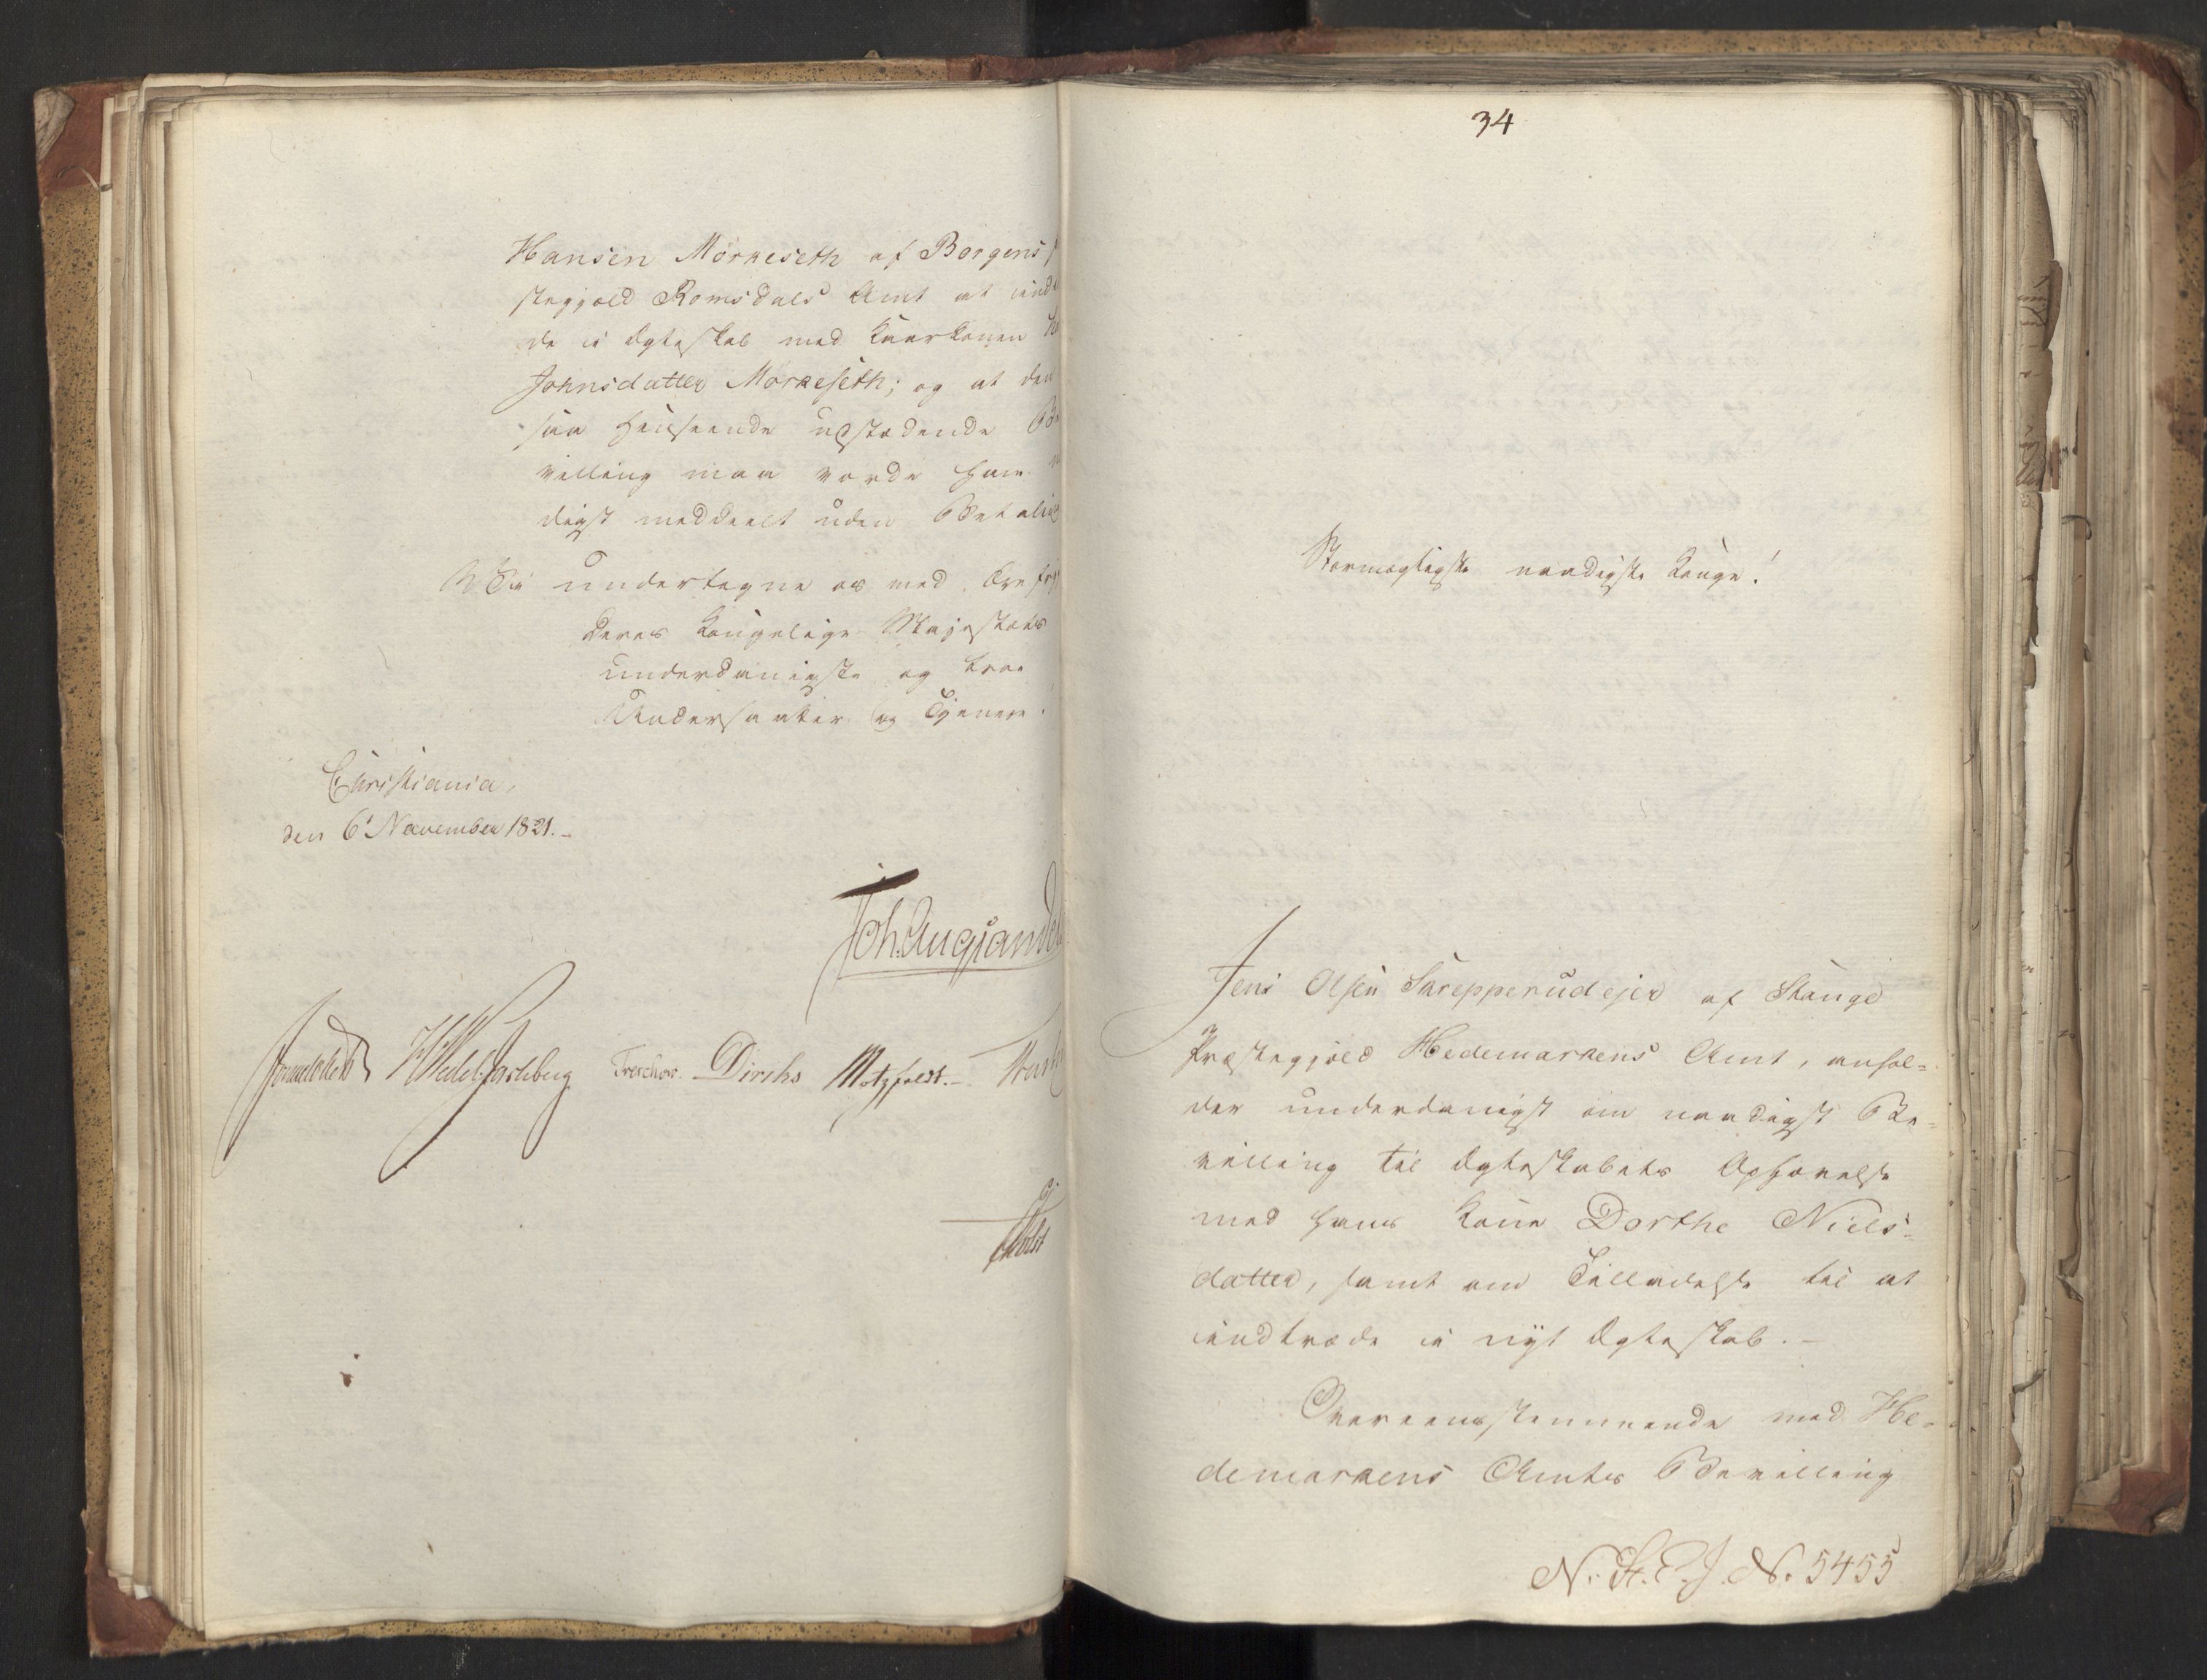 Hansen Mørkeseth af Borgens
stegjeld Romsdals Amt at ind
de i Ægteskab med Kaarkonen
Johnsdatter Mørkeseth; og at den
saa Henseende udstædende Be
villing maa vorde ham
digst meddeelt uden Betaling
Vi undertegne os med Ærefry
Deres Kongelige Majestæts
underdanigste og troe
Undersaatter og Tjenere.
Christiania,
den 6t November 1821. –
Joh. Aug Sandels
Sommerhielm HWedel-Jarlsberg Treschow. Diriks Motzfeldt. –
Holst
34
Stormægtigste naadigste Konge!
Jens Olsen Skrepperudejer af Stange
Præstegjeld Hedemarkens Amt, anhol=
der underdanigst om naadigst Be=
villing til Ægteskabets Ophævelse
med hans Kone Dorthe Niels=
datter, samt om Tilladelse til at
indtræde i nyt Ægteskab. –
Overeensstemmende med He=
demarkens Amts Bevilling
N. St. C. J. No. 5455